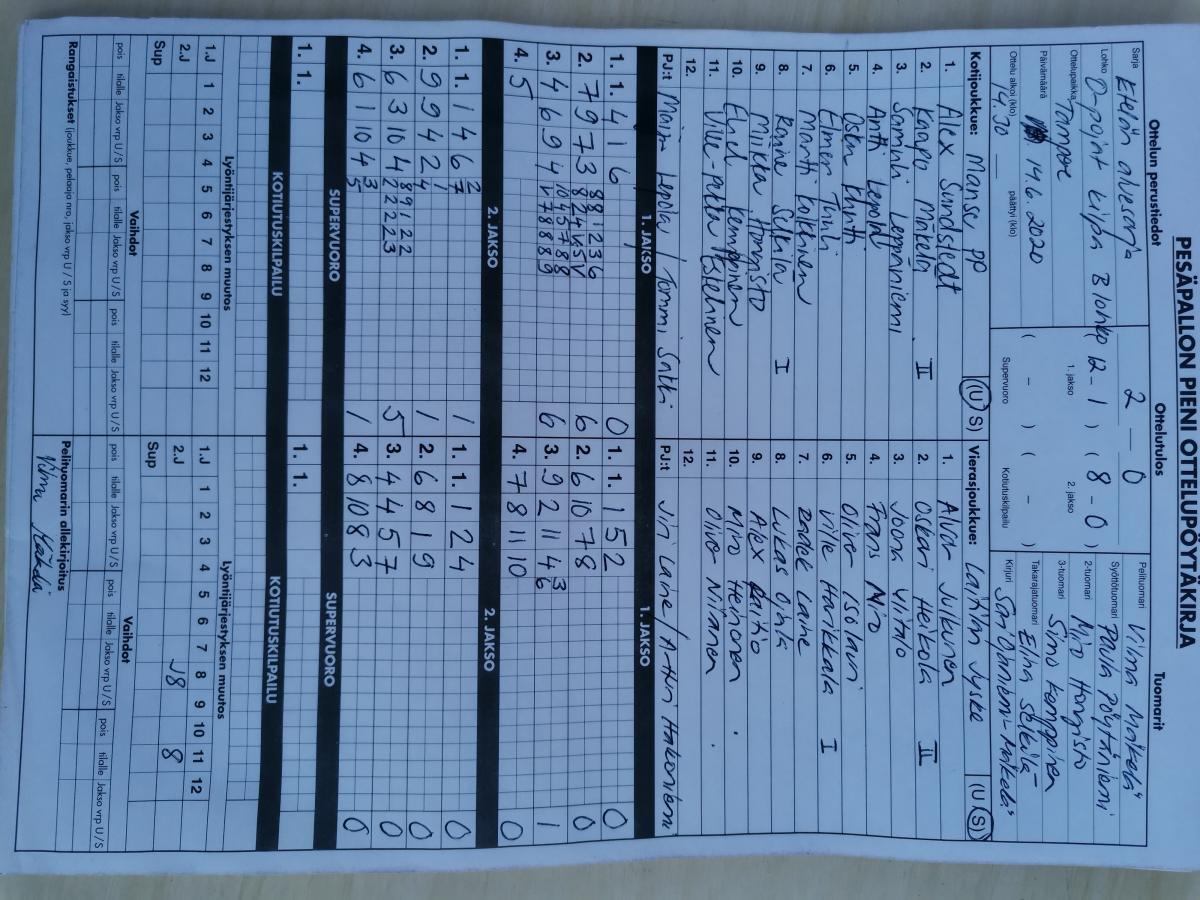 PESÄPALLON PIENI OTTELUPÖYTÄKIRJA
Ottelun perustiedot
Sarja Etelän aluesarja
Lohko D-pojat kilpa B lohko
Ottelupaikka Tampere
Päivämäärä 14.6.2020
Ottelu alkoi (klo) 14.30 päättyi (klo)
Ottelutulos
2 – 0
( 12 – 1 ) ( 8 – 0 )
1. jakso 2. jakso
( – ) ( – )
Supervuoro Kotiutuskilpailu
Tuomarit
Pelituomari Vilma Mäkelä
Syöttötuomari Paula Pöytäniemi
2-tuomari Miro Hongisto
3-tuomari Simo Kemppinen
Takarajatuomari Elina Selkilä
Kirjuri
Kotijoukkue: Manse PP (U S)
1. Alex Sundstedt
2. Kaapo Mäkelä II
3. Samuli Leppäniemi
4. Antti Lepola
5.
6. Elmer Tuuli
7. Martti Kokkinen
8. Selkilä I
9. Miikka Hongisto
10. Kemppinen
11. Ville-Pekka
12.
PJ:t Maija Lepola / Tommi Salki
Vierasjoukkue: Laitilan Jyske (U S)
1. Alvar Julkunen
2. Oskari Heikola II
3. Joona Ylitalo
4. Frans Miro
5. Oliver Isolauri
6. Ville Harikkala I
7. Laine
8. Lukas Ojala
9. Alex Laitio
10. Miro Heinonen
11. Oliver Niiranen
12.
PJ:t Jiri Laine / Arttu Hakoniemi
1. JAKSO 1. JAKSO
1. 1. 4 1 6 0
2. 7 9 7 3 6
3. 4 6 9 4 6
4. 5
1. 1. 1 5 2 0
2. 6 10 7 8 0
3. 9 2 11 4 6 3 1
4. 7 8 11 10 0
2. JAKSO 2. JAKSO
1. 1. 1 4 6 7 2 1
2. 9 9 4 2 4 1 1
3. 6 3 10 4 5
4. 6 1 10 4 5 3 1
1. 1. 1 2 4 0
2. 6 8 1 9 0
3. 4 4 5 7 0
4. 8 10 8 3 0
SUPERVUORO SUPERVUORO
1. 1.
1. 1.
KOTIUTUSKILPAILU KOTIUTUSKILPAILU
Lyöntijärjestyksen muutos
1.J 1 2 3 4 5 6 7 8 9 10 11 12
2.J
Sup
Lyöntijärjestyksen muutos
1.J 1 2 3 4 5 6 7 8 9 10 11 12
2.J J8 8
Sup
Vaihdot
pois tilalle Jakso vrp U / S pois tilalle Jakso vrp U / S pois tilalle Jakso vrp U / S pois tilalle Jakso vrp U / S
Vaihdot
pois tilalle Jakso vrp U / S pois tilalle Jakso vrp U / S pois tilalle Jakso vrp U / S
Rangaistukset (joukkue, pelaaja nro, jakso vrp U / S ja syy)
Pelituomarin allekirjoitus
Vilma Mäkelä